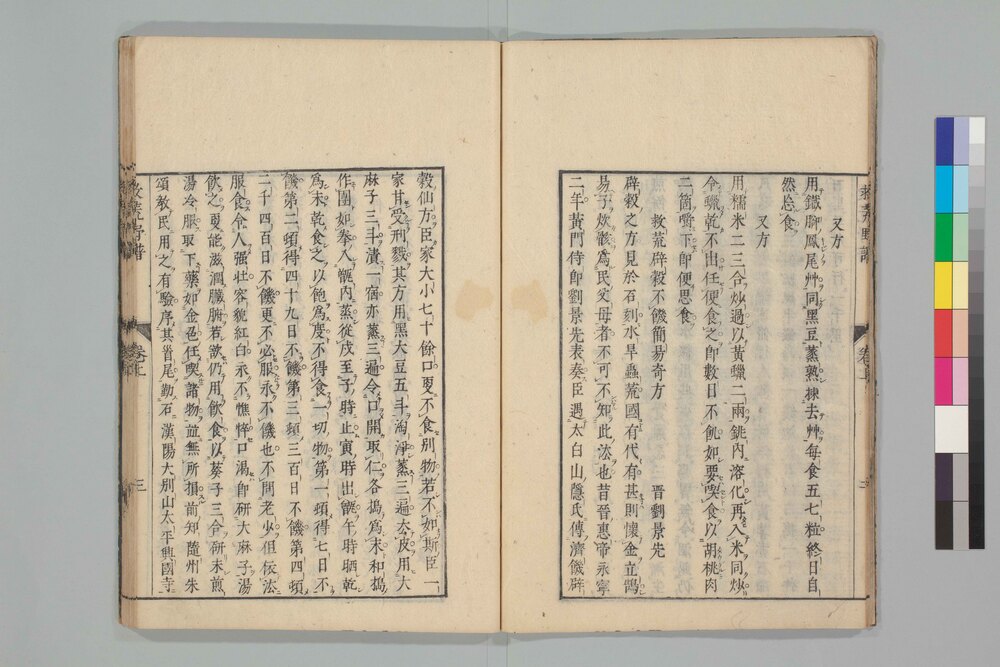 又方
用鐵腳鳳尾艸同黑豆蒸熟揀去艸每食五七粒終日自
然忘食
又方
用糯米二三合炒過以黃蠟二兩銚內溶化再入米同炒
令蠟乾不出任便食之卽數日不飢如要喫食以胡桃肉
二箇嚼下卽便思食
救荒辟穀不饑簡易奇方 晉劉景先
辟穀之方見於石刻水旱蟲荒國有代有甚則懷金立鵠
易子炊骸爲民父母者不可不知此法也昔晉惠帝永寧
二年黃門侍郎劉景先表奏臣遇太白山隱氏傳濟饑辟
穀仙方臣家大小七十餘口更不食別物若不如斯臣一
家甘受刑戮其方用黑大豆五斗淘淨蒸三遍去皮用大
麻子三斗漬一宿亦蒸三遍令口開取仁各搗爲末和搗
作團如拳入甑內蒸從戌至子時止寅時出甑午時晒乾
爲末乾食之以飽爲度不得食一切物第一頓得七日不
饑第二頓得四十九日不饑第三頓三百日不饑第四頓
二千四百日不饑更不必服永不饑也不問老少但依法
服食令人强壮容貌紅白永不憔悴口渴卽研大麻子湯
飲之更能滋潤臟腑若欲仍用飲食以葵子三合研末煎
湯冷服取下藥如金色任喫諸物並無所損前知隨州朱
頌敎民用之有驗序其首尾勒石漢陽大別山太平興國寺
卷上
三